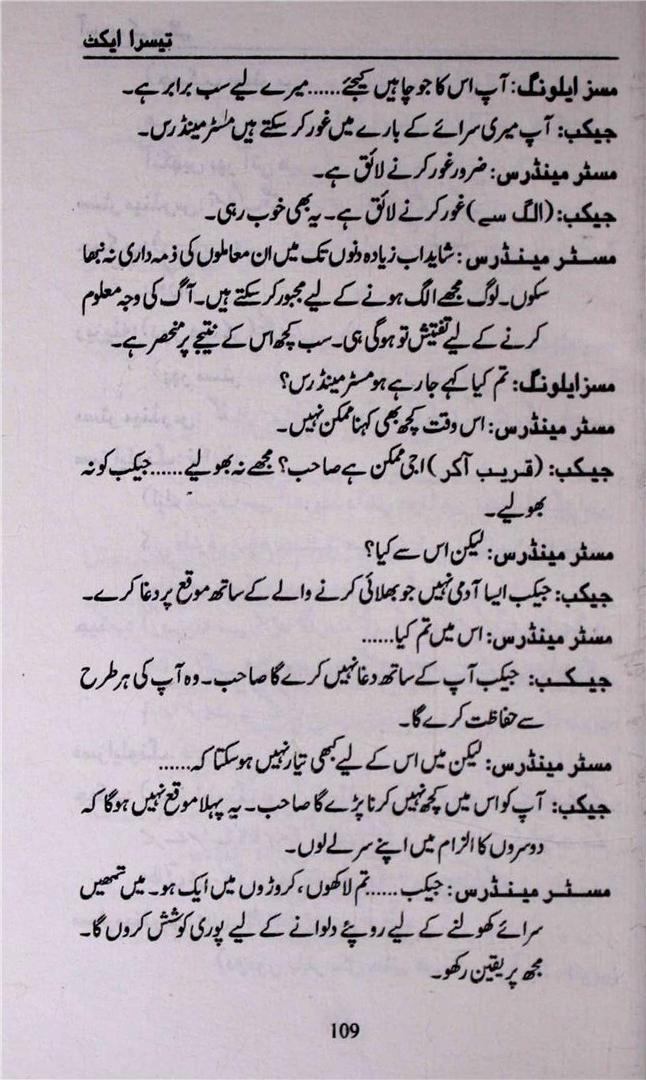 تیسرا ایکٹ
مسز ایلونگ: آپ اس کا جو چاہیں کیجئے......میرے لیے سب برابر ہے۔
جیکب: آپ میری سرائے کے بارے میں غور کر سکتے ہیں مسٹر مینڈرس۔
مسٹر مینڈرس: ضرور غور کرنے لائق ہے۔
جیکب: (الگ سے) غور کرنے لائق ہے۔ یہ بھی خوب رہی۔
مسٹر مینڈرس: شاید اب زیادہ دنوں تک میں ان معاملوں کی ذمہ داری نہ نبھا
سکوں۔ لوگ مجھے الگ ہونے کے لیے مجبور کر سکتے ہیں۔ آگ کی وجہ معلوم
کرنے کے لیے تفتیش تو ہوگی ہی۔ سب کچھ اس کے نتیجے پر منحصر ہے۔
مسز ایلونگ: تم کیا کہے جا رہے ہو مسٹر مینڈرس؟
مسٹر مینڈرس: اس وقت کچھ بھی کہنا ممکن نہیں۔
جیکب: (قریب آکر) اجی ممکن ہے صاحب؟ مجھے نہ بھولیے......جیکب کو نہ
بھولیے۔
مسٹر مینڈرس: لیکن اس سے کیا؟
جیکب: جیکب ایسا آدمی نہیں جو بھلائی کرنے والے کے ساتھ موقع پر دغا کرے۔
مسٹر مینڈرس: اس میں تم کیا......
جیکب: جیکب آپ کے ساتھ دغا نہیں کرے گا صاحب۔ وہ آپ کی ہر طرح
سے حفاظت کرے گا۔
مسٹر مینڈرس: لیکن میں اس کے لیے کبھی تیار نہیں ہو سکتا کہ......
جیکب: آپ کو اس میں کچھ نہیں کرنا پڑے گا صاحب۔ یہ پہلا موقع نہیں ہوگا کہ
دوسروں کا الزام میں اپنے سر لے لوں۔
مسٹر مینڈرس: جیکب......تم لاکھوں، کروڑوں میں ایک ہو۔ میں تمھیں
سرائے کھولنے کے لیے روپئے دلوانے کے لیے پوری کوشش کروں گا۔
مجھ پر یقین رکھو۔
109